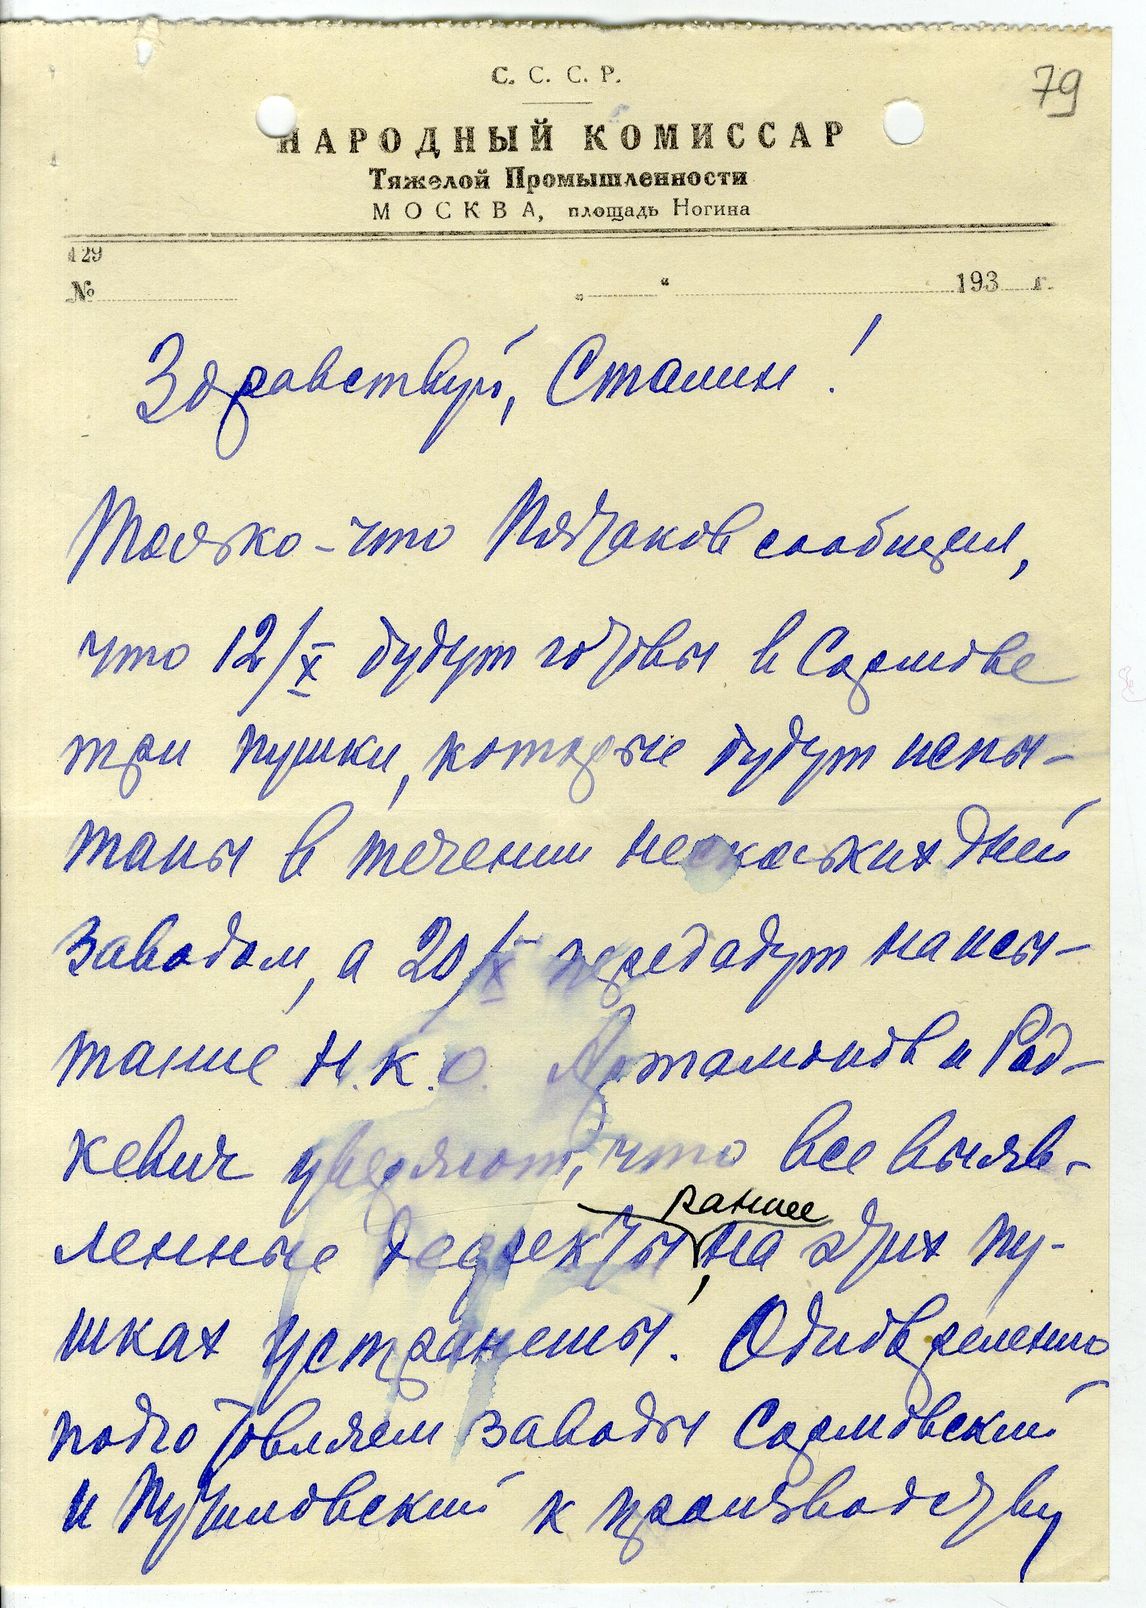 79
С. С. С. Р.
НАРОДНЫЙ КОМИССАР
Тяжелой Промышленности
МОСКВА, площадь Ногина
129
№ „ “ 193 г.
Здравствуй, Сталин!
Только-что Пятаков сообщил,
что 12/X будут готовы в Сормове
три пушки, которые будут испы-
таны в течении нескольких дней
заводом, а 20/X передадут на исы-
тание Н.К.О. Артамонов и Рад-
кевич уверяют, что все выяв-
раннее
ленные дефекты, на этих пу-
шках устранены. Одновременно
подготовляем заводы Сормовский
и Путиловский к производству